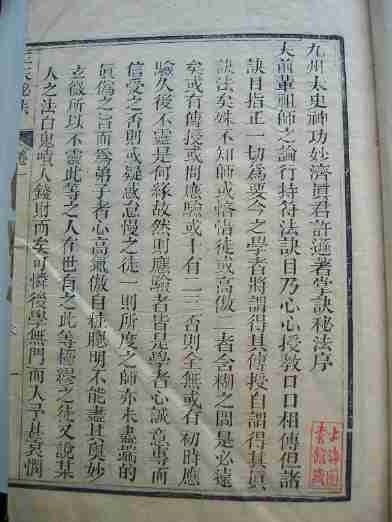 九州太史神功妙濟眞君許遜著掌訣秘法序
夫前輩祖師之論行持符法訣目乃心心授教口口相傳但諸
訣目指正一切爲要今之學者將謂得其傳授自謂得其眞
訣法矣殊不知師或悋惜徒或高傲二者含糊之間是必遠
矣或有傳授或間應驗或十有二三否則全無或有初時應
驗久後不靈是何緣故然則應驗者皆是學者心誠意專而
信受之否則或疑或忽慢之徒一則所度之師亦未盡端的
眞僞之旨而爲弟子者心高氣傲自誇聰明不能盡其奥妙
玄微所以不靈此等之人在世有之此等極謬之徒又說某
人之法白鬼噴人錢財而矣可憐後學無門而入予甚哀憫
上海圖
書館藏